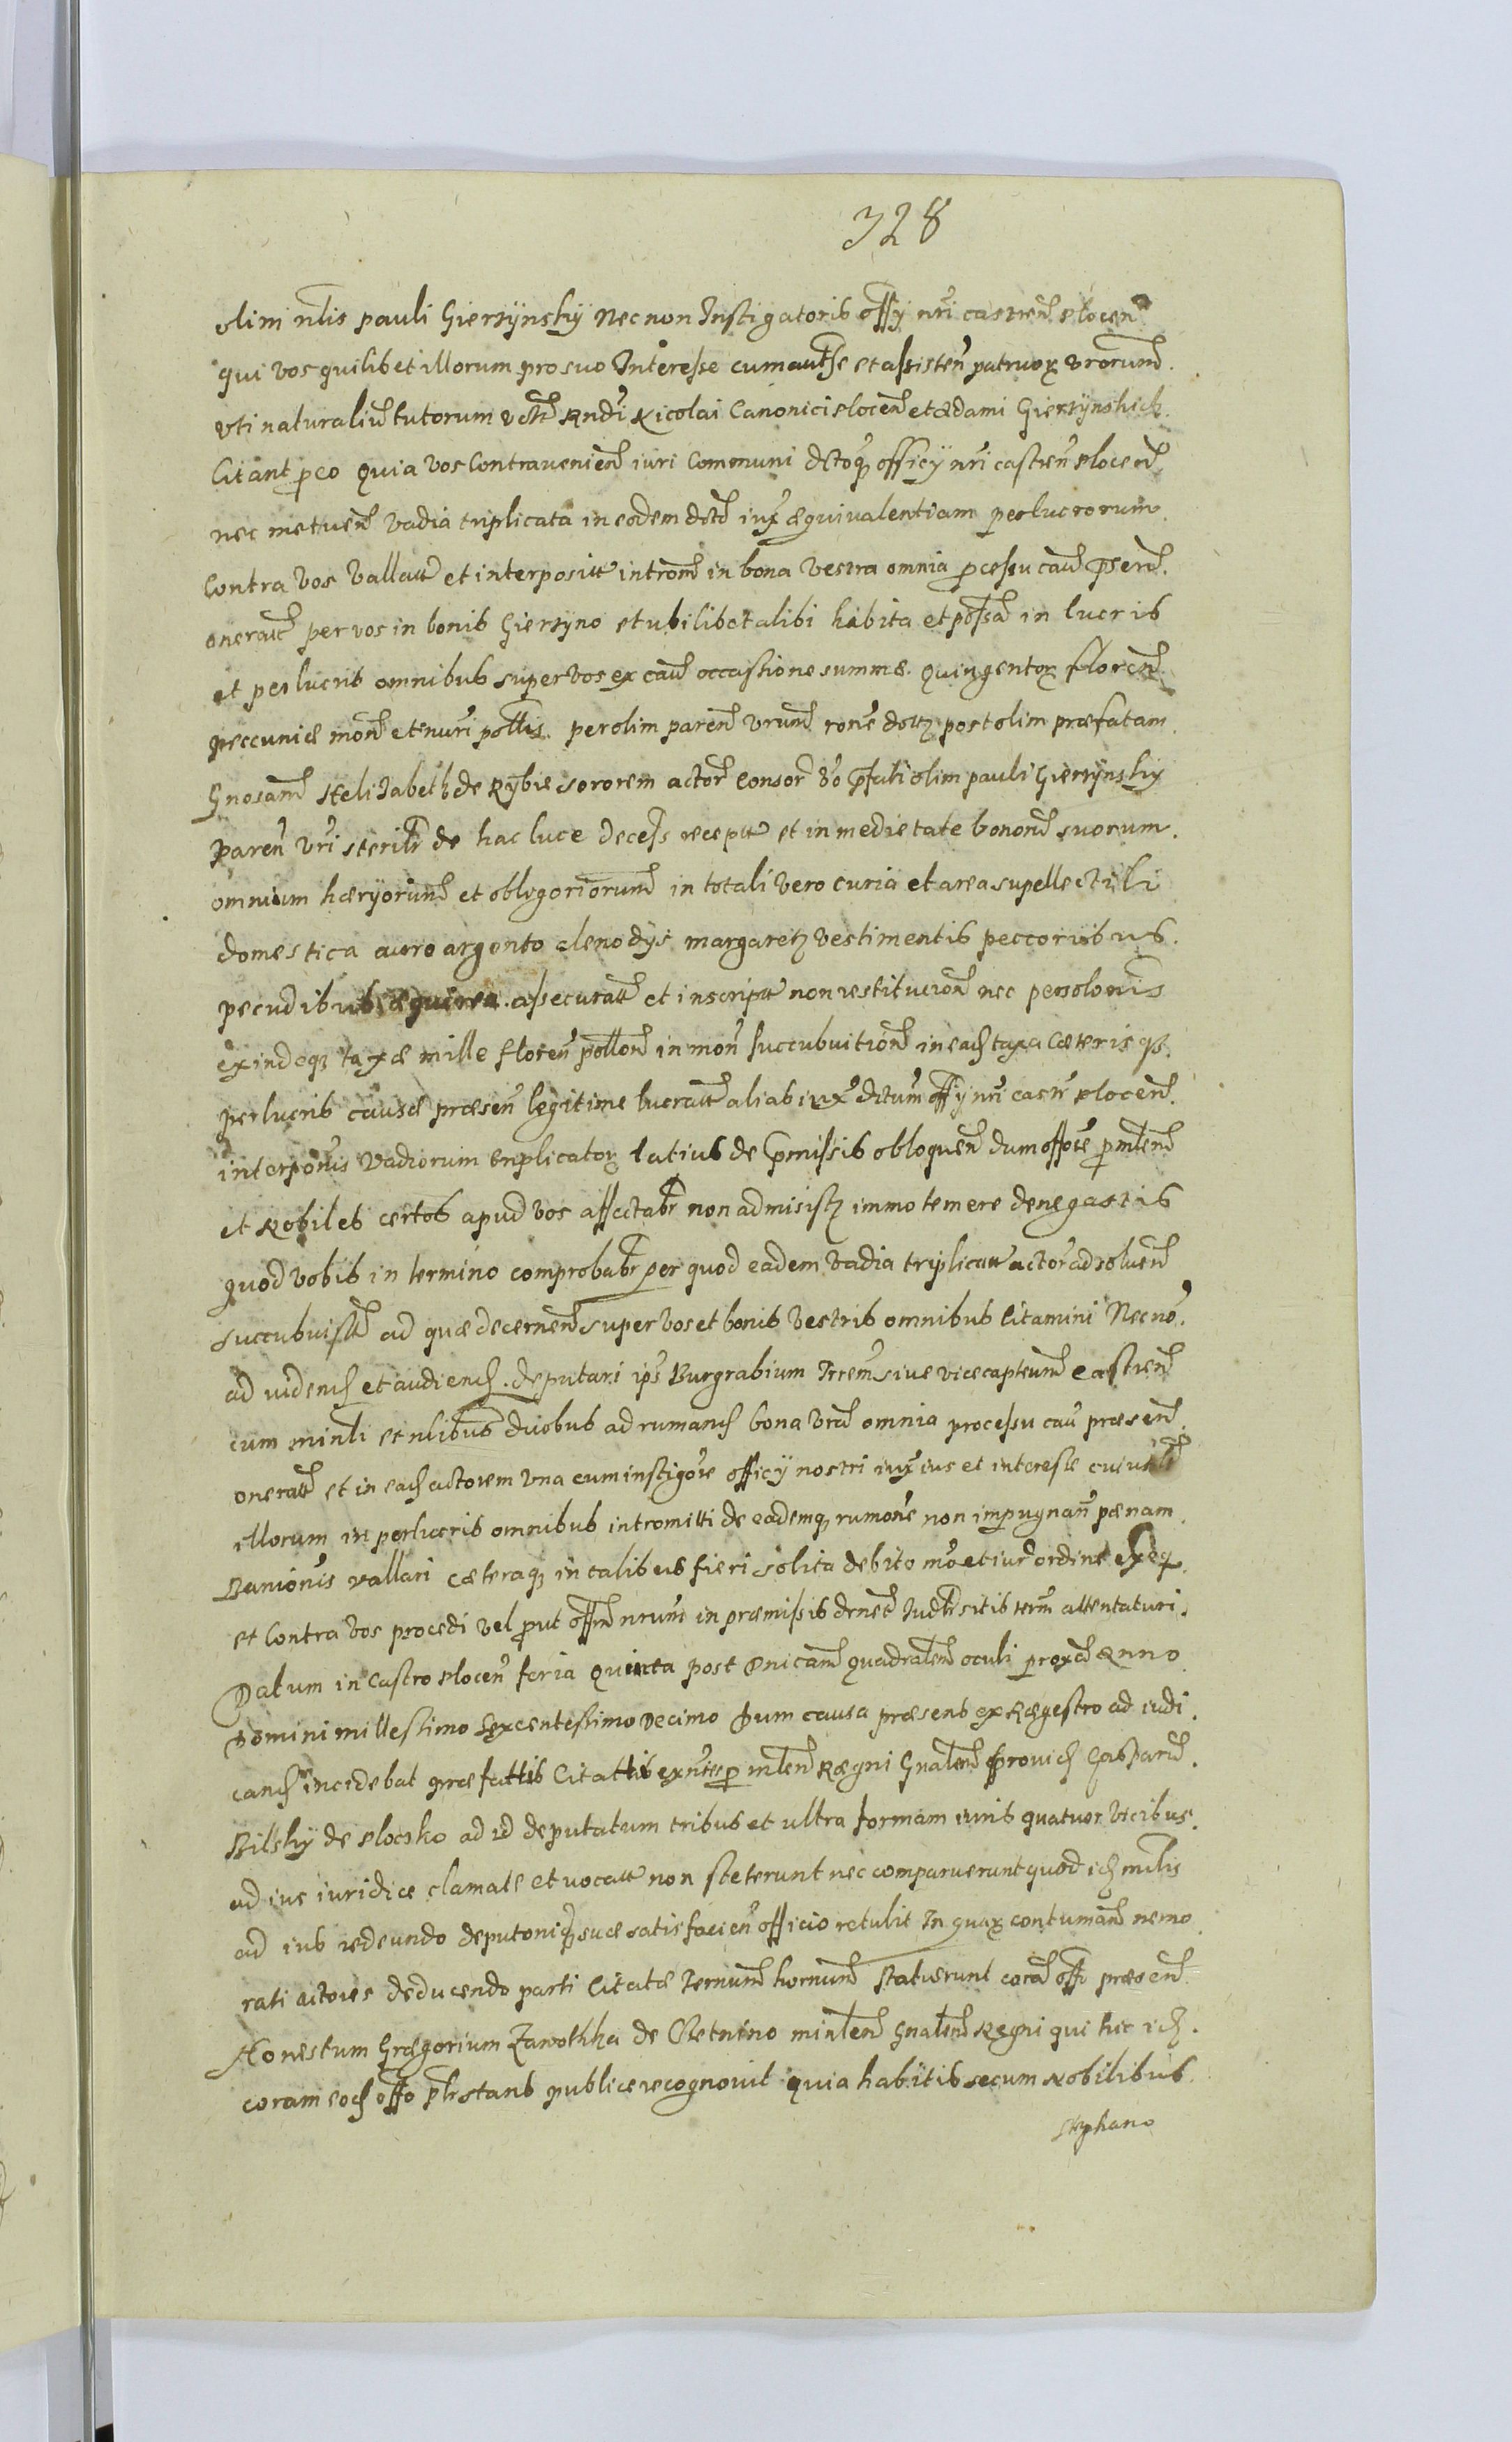 328
olim nlis pauli Gierzÿnskÿ Necnon Instigatoris offÿ nri castren plocen
qui vos quilibet illorum pro suo Interesse cum autse et assisten patruor vrorum
vti naturaliu tutorum vtb Rndi Nicolai Canonici plocen et Adami Gierzÿnskich
Citant p eo Quia vos Contravenien iuri Communi dctoq officÿ nri castren plocen
nec metuen Vadia triplicata in eodem dcto iux æquivalentiam perlucrorum
Contra vos Vallatt et interposiit introm in bona vestra omnia pcessu caus psen
oneratt per vos in bonis Gierzyno et ubilibet alibi habita et possa in lucris
et perlucris omnibus super vos ex caus occassione summæ Quingentor floren
peccuniæ mon et nuri pollis per olim paren vrum rone dotz post olim præfatam
Gnosam Helizabeth de Rÿbie sororem actor Consor vo pfati olim pauli Gierzÿnskÿ
paren vri sterilr de hac luce decess receptt et in medietate bonon suorum
omnium hæryorum et oblogoriorum in totali vero curia et area supellectili
domestica auro argento clenodÿs margaretz vestimentis peccoribus
pecudibus æquirea assecuratt et inscriptt non restitucion nec persolonis
exindeq taxæ mille floren pollon in mon succubuition in each taxa Cæterisqz
perlucris causæ præsen legitime lucratt alias iux dctum offÿ nri castr plocen
interponis Vadiorum triplicator latius de pmissis obloquen dum offore pmlen
et Nobiles certos apud vos affectabr non admisistz immo temere denegastis
quod vobis in termino comprobabr per quod eadem vadia triplicatt actor adsoluen
succubuistis ad quæ decernen super vos et bonis vestris omnibus Citamini Necno
ad viden et audien deputari ips Burgrabium Trrem sive vicecapteum castren
cum minli et nlibus duobus ad rumand bona vra omnia processu caus præsen
oneratt et in each actorem vna cum instigore officÿ nostri iux ius et interesse cuiuslt
illorum in perlucris omnibus intromitti de eademq rumone non impugnan pænam
Banionis vallari cæteraq in talibus fieri solita debito mo et iur ordine exeq
et Contra vos procedi vel put offm nrum in præmissis drnet Iudr sitis term attentaturi
Datum in Castro plocen feria Quinta post Dnicam quadralem oculi proxa Anno
Domini millessimo Sexcentessimo Decimo Dum causa præsens ex Rægestro ad iudi
cand incidebat præfattis Citattis exnte p mlen Rægni Gnalem provich Casparu
Bilskÿ de plocsko ad id deputatum tribus et ultra formam iuris quatuor vicibus
ad ius iuridice clamatt et vocatt non steterunt nec comparuerunt quod ich minlis
ad ius redeundo deputoniqz suæ satisfacien officio retulit In quar contuman nemo
rati actores deducendo parti Citatæ Ternum hornum statuerunt cora offo præsen
Honestum Grægorium Zawothka de Cletnino minlem gnalem Regni qui hic ich
coram eoch offo phrstans publice recognovit quia habitis secum Nobilibus
Stephano